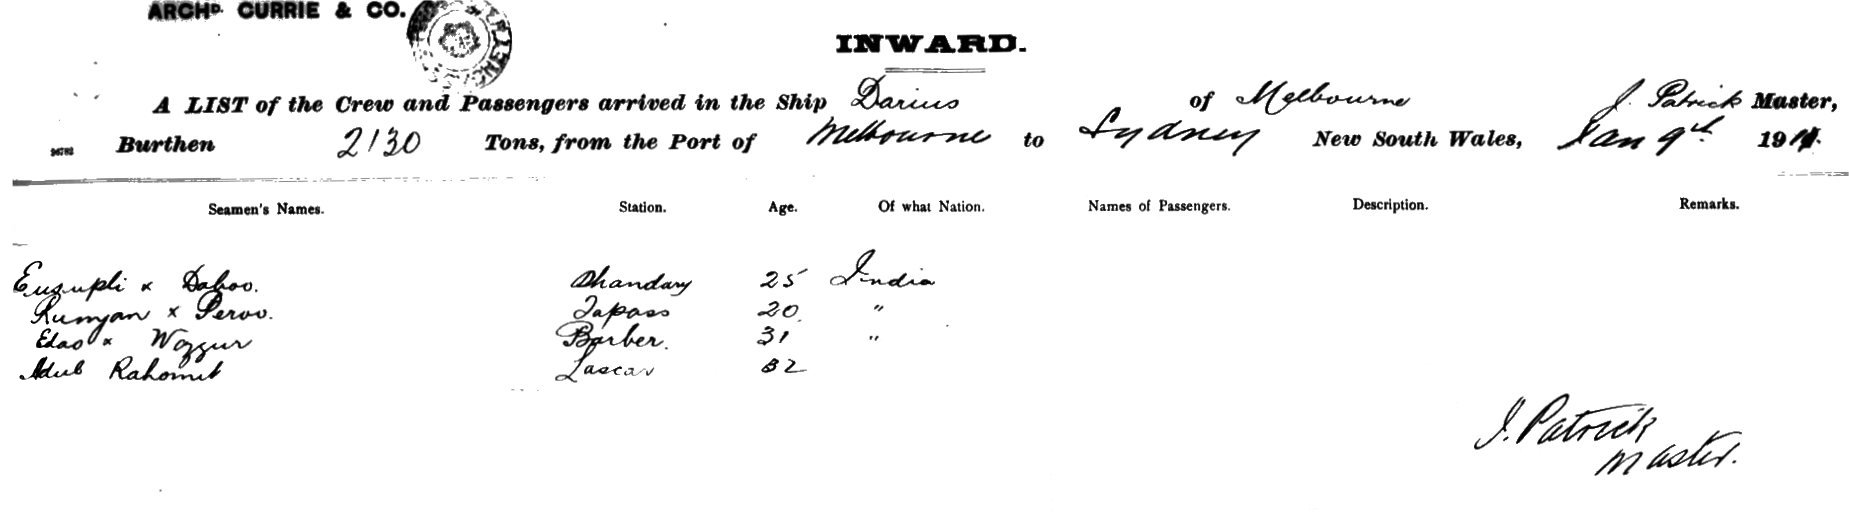 ARCHD. CURRIE & CO.
INWARD.
A LIST of the Crew and Passengers arrived in the Ship Darius of Melbourne J. Patrick Master,
Burthen 2130 Tons, from the Port of Melbourne to Sydney New South Wales, Jan 9th 1911.
Seamen's Names. Station. Age. Of what Nation. Names of Passengers. Description. Remarks.
Eusupli x Daboo. Bhandary 25 India
Rumjan x Peroo. Topass 20 "
Edao x Wozzur Barber. 31 "
Adub Rahomit Lascar 32
J. Patrick
Master.